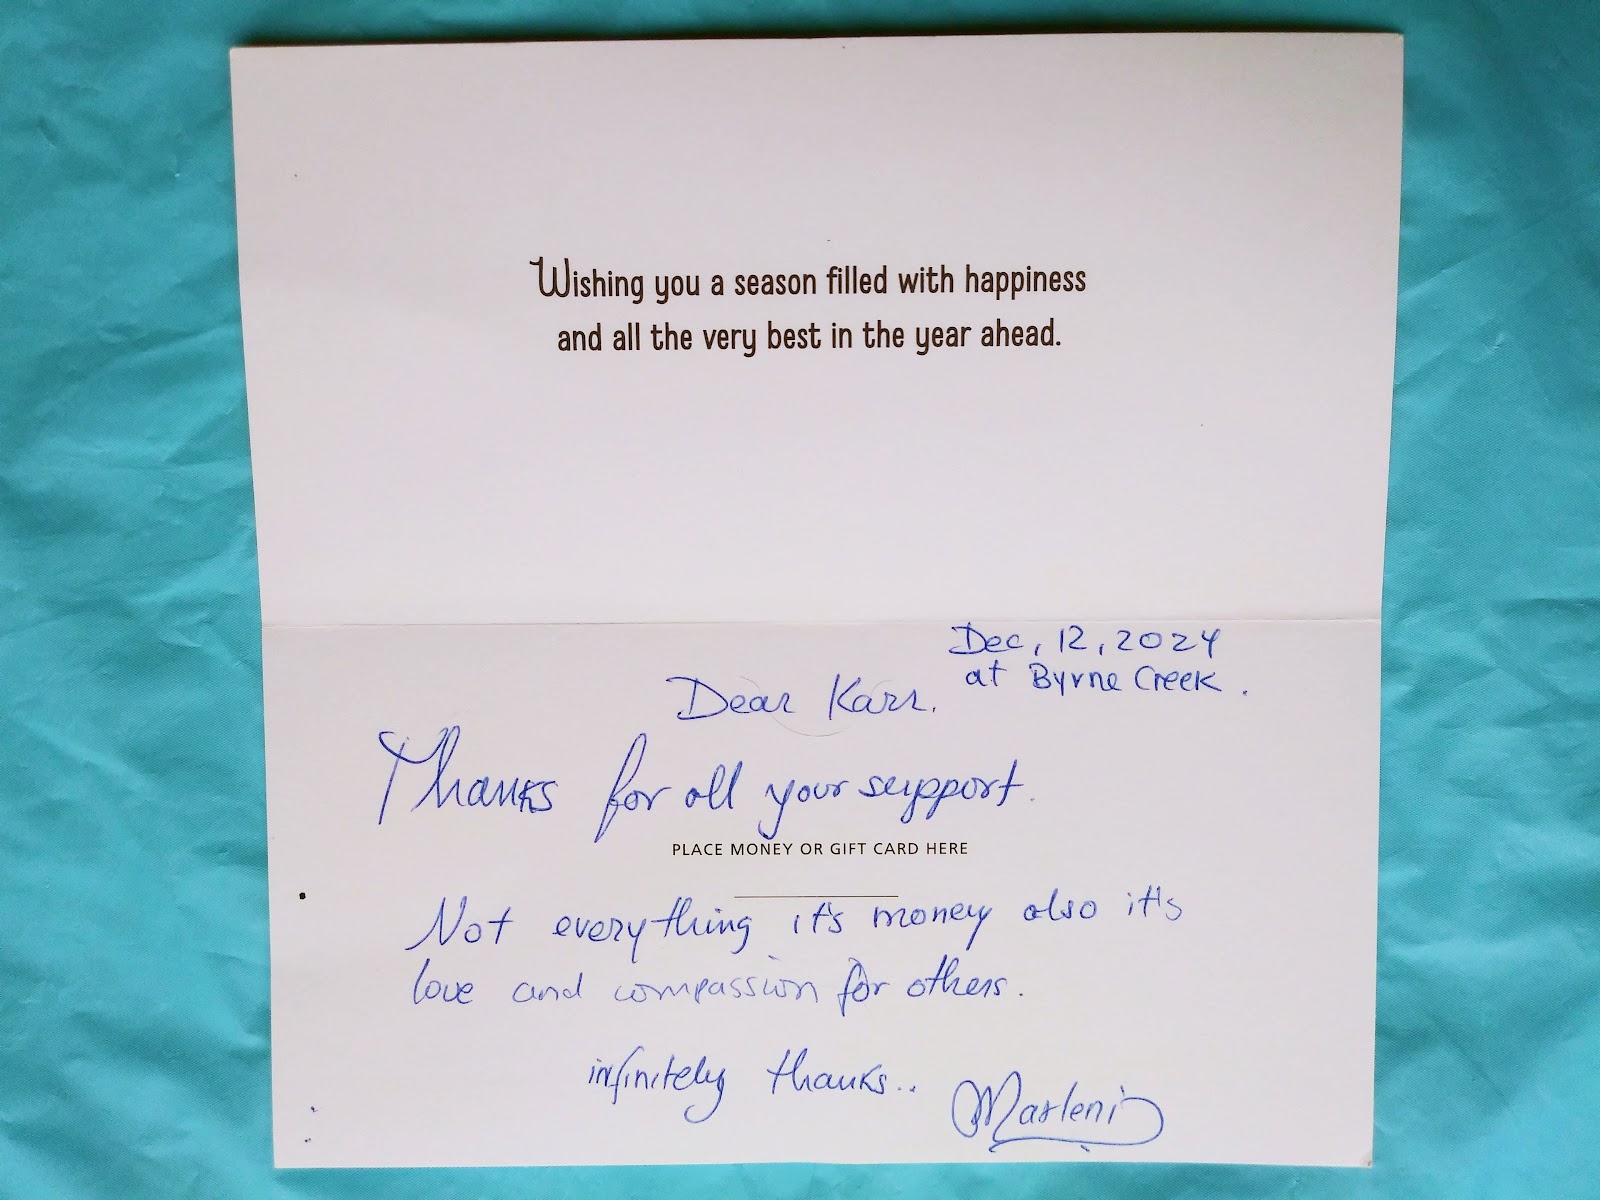 Wishing you a season filled with happiness
and all the very best in the year ahead.
Dec, 12, 2024
at Byrne Creek.
Dear Karr.
Thanks for all your support.
PLACE MONEY OR GIFT CARD HERE
Not everything it's money also it's
love and compassion for others.
infinitely thanks..
Marleni